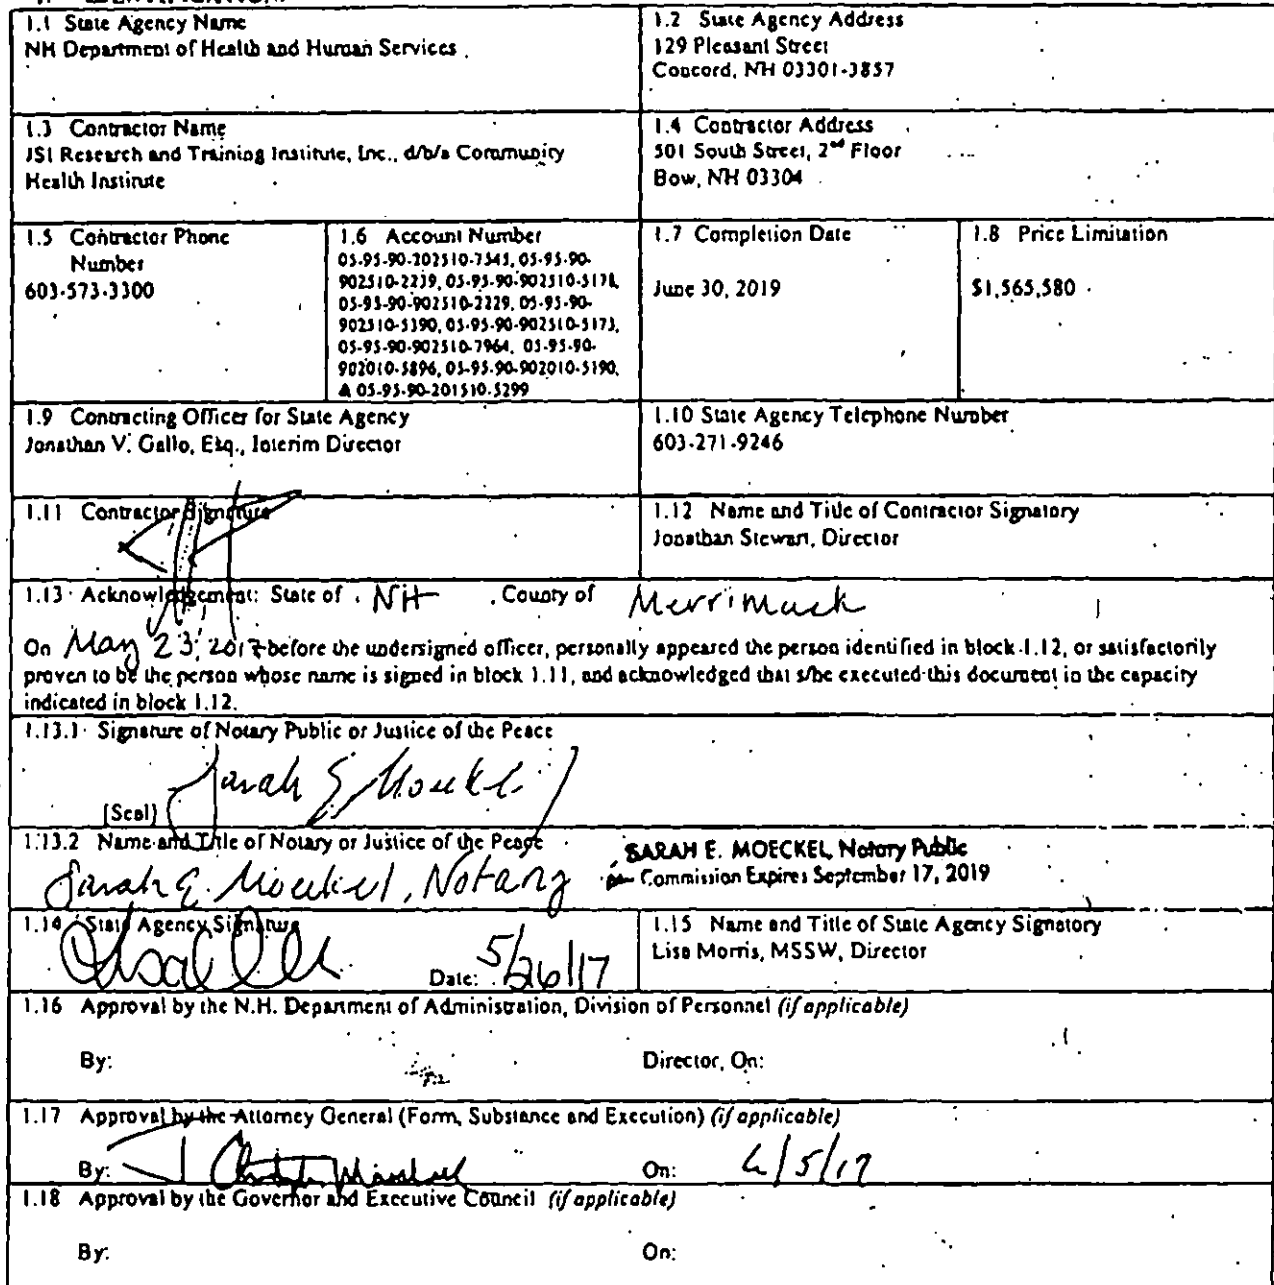 1.1 State Agency Name
NH Department of Health and Human Services
1.2 State Agency Address
129 Pleasant Street
Concord, NH 03301-3857
1.3 Contractor Name
JSI Research and Training Institute, Inc., d/b/a Community
Health Institute
1.4 Contractor Address
501 South Street, 2nd Floor
Bow, NH 03304
1.5 Contractor Phone
Number
603-573-3300
1.6 Account Number
05-95-90-202510-7545, 05-95-90-
902510-2239, 05-95-90-902510-5178,
05-95-90-902510-2229, 05-95-90-
902510-5390, 05-95-90-902510-5173,
05-95-90-902510-7964, 05-95-90-
902010-5896, 05-95-90-902010-5190,
& 05-95-90-201510-5299
1.7 Completion Date
June 30, 2019
1.8 Price Limitation
$1,565,580
1.9 Contracting Officer for State Agency
Jonathan V. Gallo, Esq., Interim Director
1.10 State Agency Telephone Number
603-271-9246
1.11 Contractor Signature
1.12 Name and Title of Contractor Signatory
Jonathan Stewart, Director
1.13 Acknowledgement: State of NH, County of Merrimack
On May 23, 2017 before the undersigned officer, personally appeared the person identified in block 1.12, or satisfactorily
proven to be the person whose name is signed in block 1.11, and acknowledged that s/he executed this document in the capacity
indicated in block 1.12.
1.13.1 Signature of Notary Public or Justice of the Peace
Sarah E Moeckel
[Seal]
1.13.2 Name and Title of Notary or Justice of the Peace
SARAH E. MOECKEL, Notary Public
Commission Expires September 17, 2019
Sarah E. Moeckel, Notary
1.14 State Agency Signature
Date: 5/26/17
1.15 Name and Title of State Agency Signatory
Lisa Morris, MSSW, Director
1.16 Approval by the N.H. Department of Administration, Division of Personnel (if applicable)
By:
Director, On:
1.17 Approval by the Attorney General (Form, Substance and Execution) (if applicable)
By:
On: 6/5/17
1.18 Approval by the Governor and Executive Council (if applicable)
By:
On: